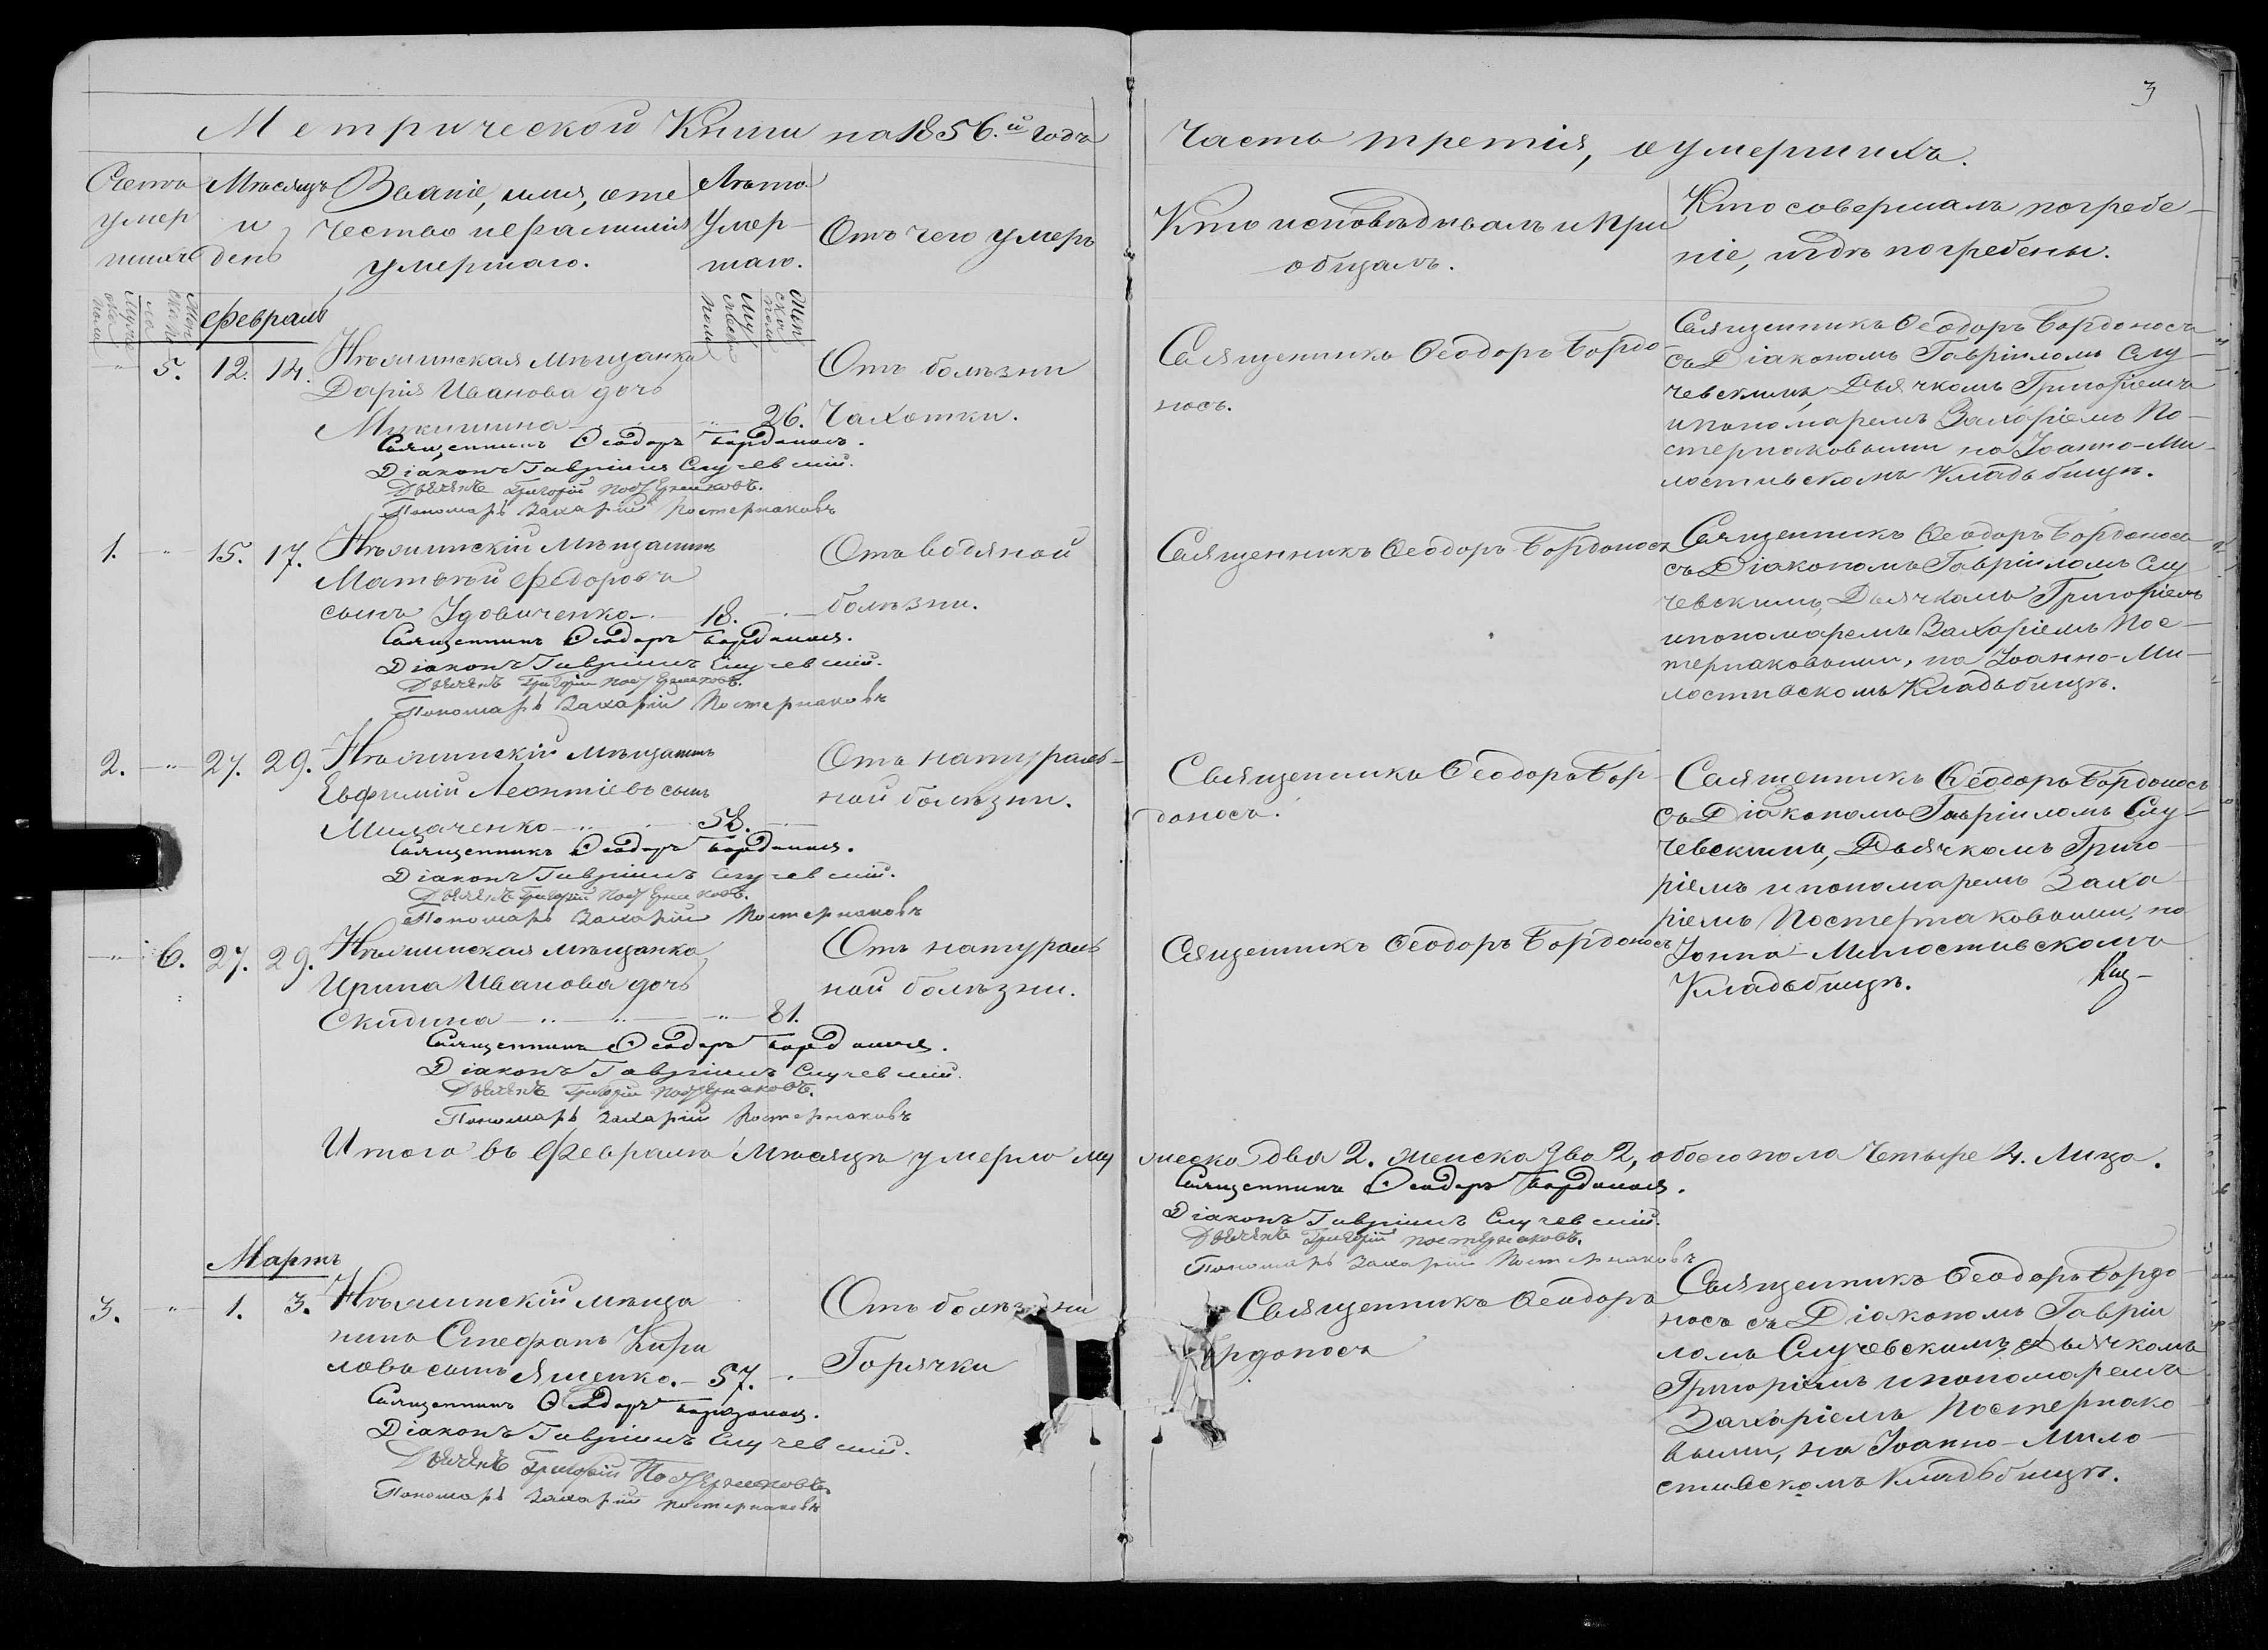 3
Метрической Книги на 1856.й годъ
Часть третія, о умершихъ.
Счетъ умер шихъ
Мѣсяцъ и день
Званіе, имя, оте чество и фамилія умершаго.
Лѣта Умер шаго.
Отъ чего умеръ
Кто исповѣдывалъ и при общалъ.
Кто совершалъ погребе- ніе, и гдѣ погребены.
Февраль
5. 12. 14. Нѣжинская мѣщанка
Дарія Иванова дочь
26.
Отъ болѣзни
Чахотки.
Священникъ Ѳеодоръ Бордо-
носъ.
Священникъ Ѳеодоръ Бордоносъ
съ Діакономъ Гавріиломъ Слу-
чевскимъ, Дьячкомъ Григоріемъ
и пономаремъ Захаріемъ По-
стернаковыми на Іоанно-Ми-
лостивскомъ Кладьбищѣ.
Священникъ Ѳеодоръ Бордоносъ.
Діаконъ Гавріилъ Случевскій.
Дьячекъ Григорій Постернаковъ.
Пономарь Захарій Постернаковъ
1. 15. 17. Нѣжинскій мѣщанинъ
Матвѣй Федоровъ
сынъ Удовиченко 18.
Отъ водяной
болѣзни.
Священникъ Ѳеодоръ Бордоносъ
Священникъ Ѳеодоръ Бордоносъ
съ Діакономъ Гавріиломъ Слу
чевскимъ, Дьячкомъ Григоріемъ
и пономаремъ Захаріемъ Пос-
тернаковыми, на Іоанно-Ми-
лостивскомъ Кладьбищѣ.
Священникъ Ѳеодоръ Бордоносъ.
Діаконъ Гавріилъ Случевскій.
Дьячекъ Григорій Постернаковъ.
Пономарь Захарій Постернаковъ
2. 27. 29. Нѣжинскій мѣщанинъ
Евфимій Леонтіевъ сынъ
58.
Отъ натураль-
ной болѣзни.
Священникъ Ѳеодоръ Бор-
доносъ.
Священникъ Ѳеодоръ Бордоносъ
съ Діакономъ Гавріиломъ Слу-
чевскимъ, Дьячкомъ Григо-
ріемъ и пономаремъ Заха-
ріемъ Постернаковыми, на
Іоанна-Милостивскомъ
Кладьбищѣ.
Священникъ Ѳеодоръ Бордоносъ.
Діаконъ Гавріилъ Случевскій.
Дьячекъ Григорій Постернаковъ.
Пономарь Захарій Постернаковъ
6. 27. 29. Нѣжинская мѣщанка
Ирина Иванова дочь
Скидина 81.
Отъ натураль
ной болѣзни.
Священникъ Ѳеодоръ Бордоносъ
Священникъ Ѳеодоръ Бордоносъ.
Діаконъ Гавріилъ Случевскій.
Дьячекъ Григорій Постернаковъ.
Пономарь Захарій Постернаковъ
Итого въ Февралѣ Мѣсяцѣ умерло му жеска два 2. женска два 2, обоего пола Четыре 4. Лица.
Священникъ Ѳеодоръ Бордоносъ.
Діаконъ Гавріилъ Случевскій.
Дьячекъ Григорій Постернаковъ.
Пономарь Захарій Постернаковъ
Мартъ
3. 1. 3. Нѣжинскій мѣща
нинъ Стефанъ Кири
ловъ сынъ Яценко. 57.
Отъ болѣзни
Горячки
Священникъ Ѳеодоръ
Бордоносъ
Священникъ Ѳеодоръ Бордо-
носъ съ Діакономъ Гавріи
ломъ Случевскимъ, Дьячкомъ
Григоріемъ и пономаремъ
Захаріемъ Постернако
выми, на Іоанно-Мило-
стивскомъ Кладьбищѣ.
Священникъ Ѳеодоръ Бордоносъ.
Діаконъ Гавріилъ Случевскій.
Дьячекъ Григорій Постернаковъ
Пономарь Захарій Постернаковъ